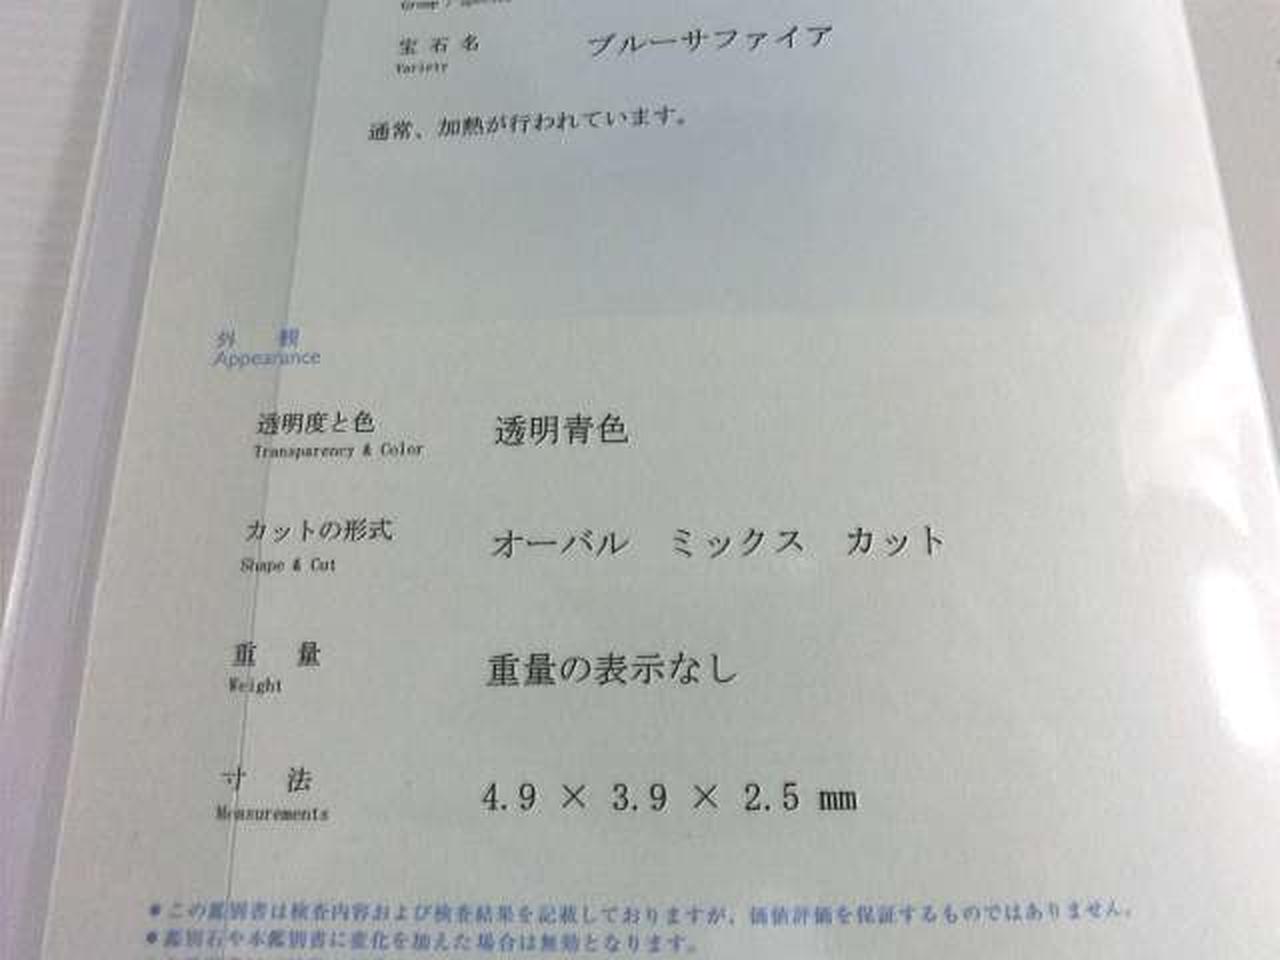 Group / Species
宝石名 ブルーサファイア
Variety
通常、加熱が行われています。
外観
Appearance
透明度と色 透明青色
Transparency & Color
カットの形式 オーバル ミックス カット
Shape & Cut
重量 重量の表示なし
Weight
寸法 4.9 × 3.9 × 2.5 mm
Measurements
＊この鑑別書は検査内容および検査結果を記載しておりますが、価値評価を保証するものではありません。
＊鑑別石や本鑑別書に変化を加えた場合は無効となります。